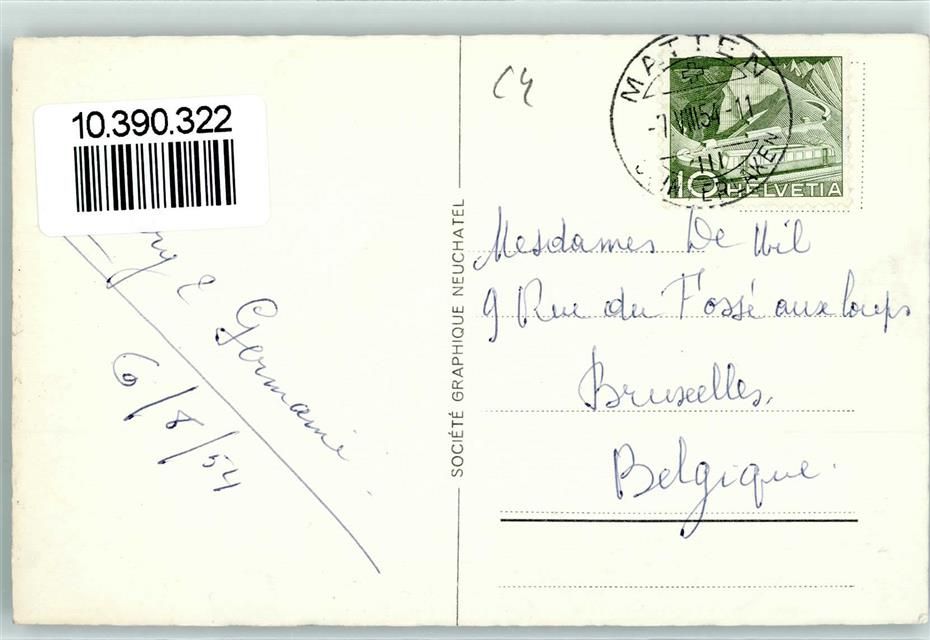 10.390.322
Germaine
6/8/54
SOCIÉTÉ GRAPHIQUE NEUCHATEL
C4
MATTEN
-7.VIII.54-11
10 HELVETIA
Mesdames De Wil
9 Rue du Fossé aux loups
Bruxelles.
Belgique.